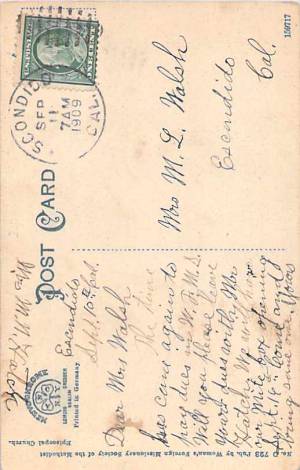 ESCONDIDO
SEP
11
7 AM
1909
CAL.
POST CARD
159717
Mrs M. L. Walsh
Escondido
Cal.
Escondido
Sept. 10th
Dear Mrs Walsh
The time
has come again to
pay dues in W.F.M.S.
will you please leave
yours with Mrs
our Mite box opening
Sept. 18th Come and
bring some one. Yours
Mrs
London Berlin Dresden
N.Y.
Printed in Germany
No. D 793 Pub. by Woman's Foreign Missionary Society of the Methodist
Episcopal Church.